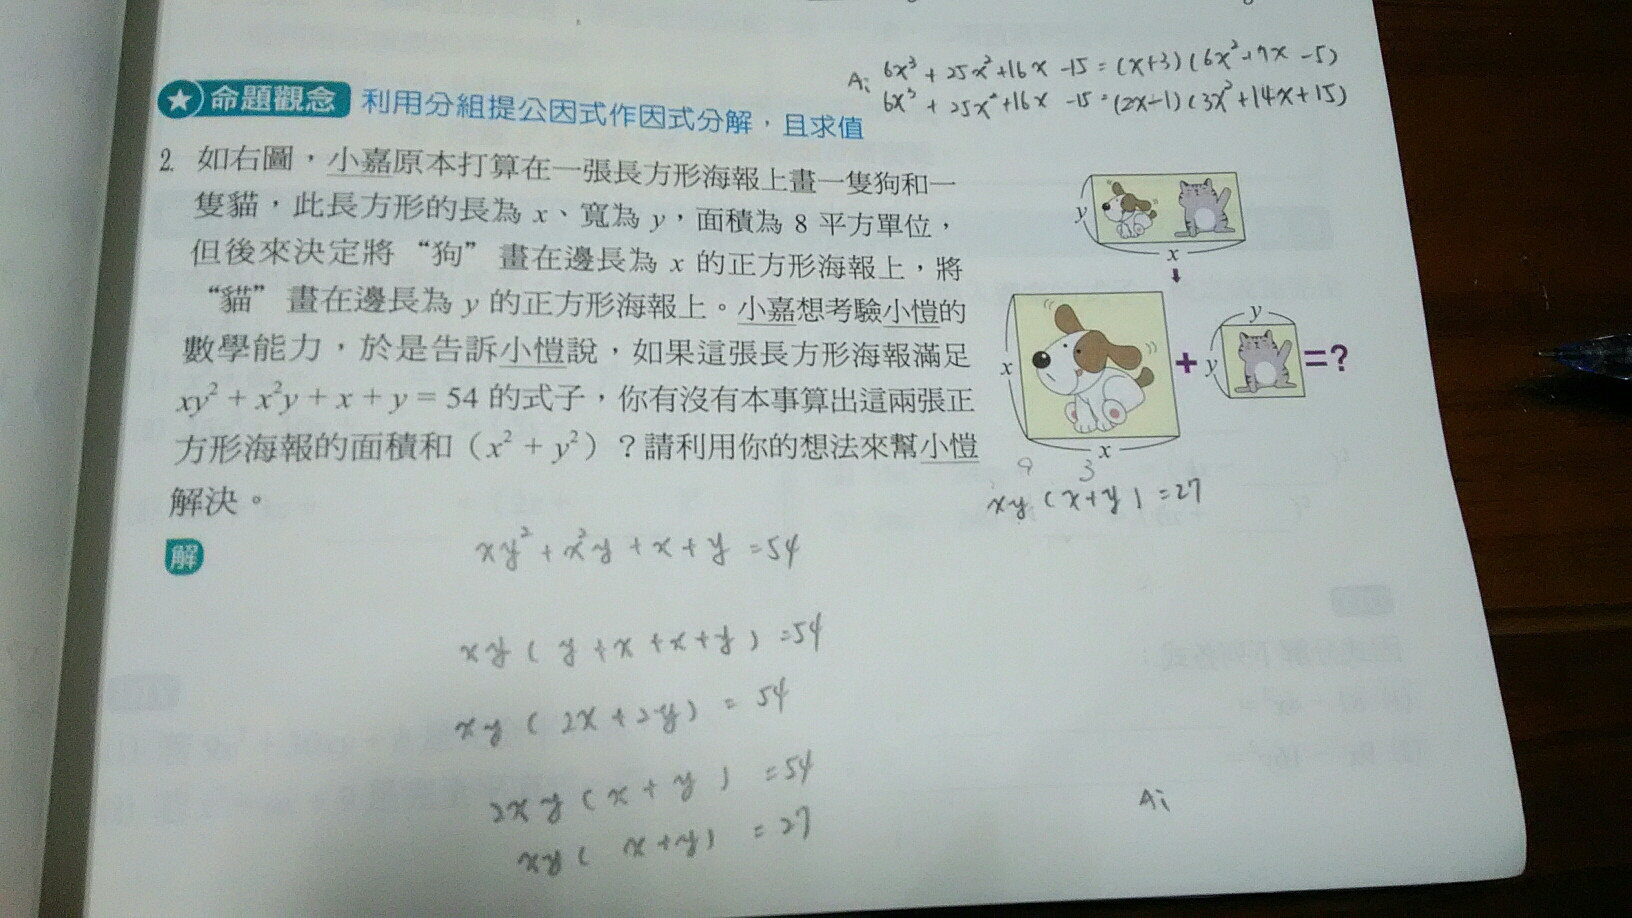 A: 6x³ + 25x² + 16x - 15 = (x+3)(6x²+7x-5)
6x³ + 25x² + 16x - 15 = (2x-1)(3x²+14x+15)
命題觀念 利用分組提公因式作因式分解，且求值
2. 如右圖，小嘉原本打算在一張長方形海報上畫一隻狗和一
隻貓，此長方形的長為 x、寬為 y，面積為 8 平方單位，
但後來決定將“狗”畫在邊長為 x 的正方形海報上，將
“貓”畫在邊長為 y 的正方形海報上。小嘉想考驗小愷的
數學能力，於是告訴小愷說，如果這張長方形海報滿足
xy² + x²y + x + y = 54 的式子，你有沒有本事算出這兩張正
方形海報的面積和（x² + y²）？請利用你的想法來幫小愷
解決。
y
x
x
x
+
y
y
=?
9 3
xy (x+y) = 27
解
xy² + x²y + x + y = 54
xy ( y + x + x + y ) = 54
xy ( 2x + 2y ) = 54
2xy ( x + y ) = 54
xy ( x + y ) = 27
A: